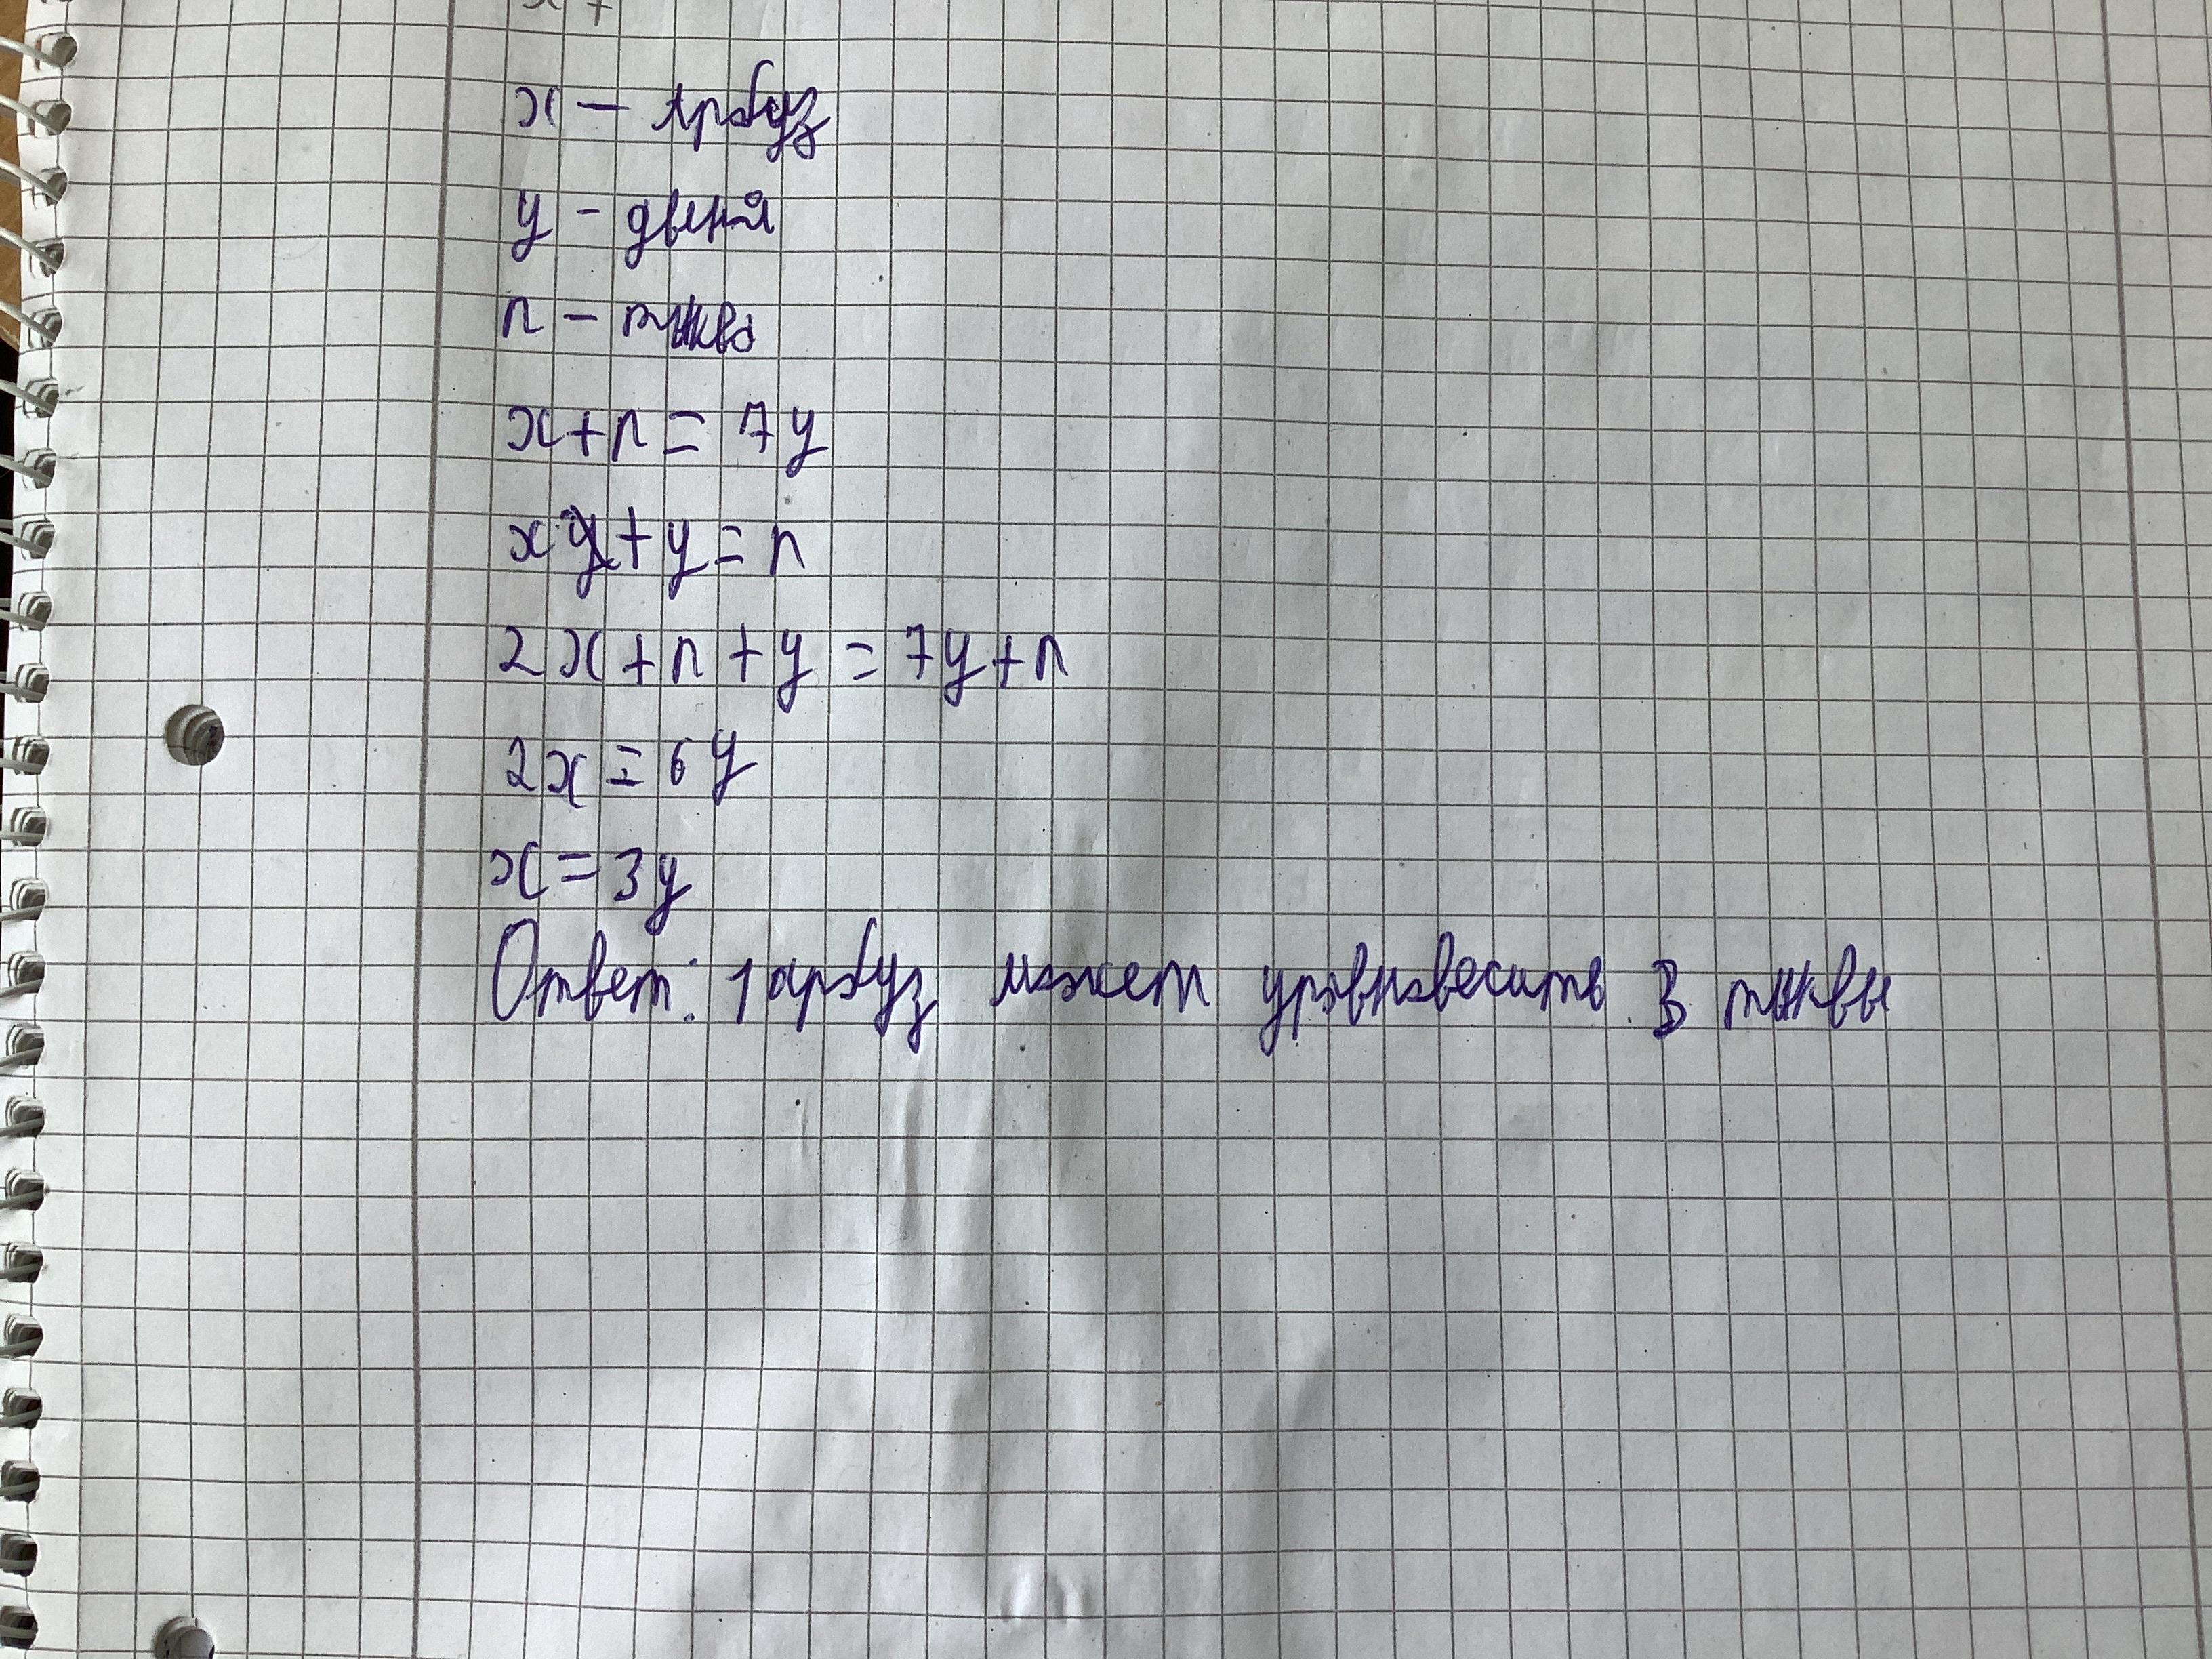 x – Арбуз
y – дыня
n – тыква
x + n = 7y
x + y = n
2x + n + y = 7y + n
2x = 6y
x = 3y
Ответ: 1 арбуз может уровновесить 3 тыквы